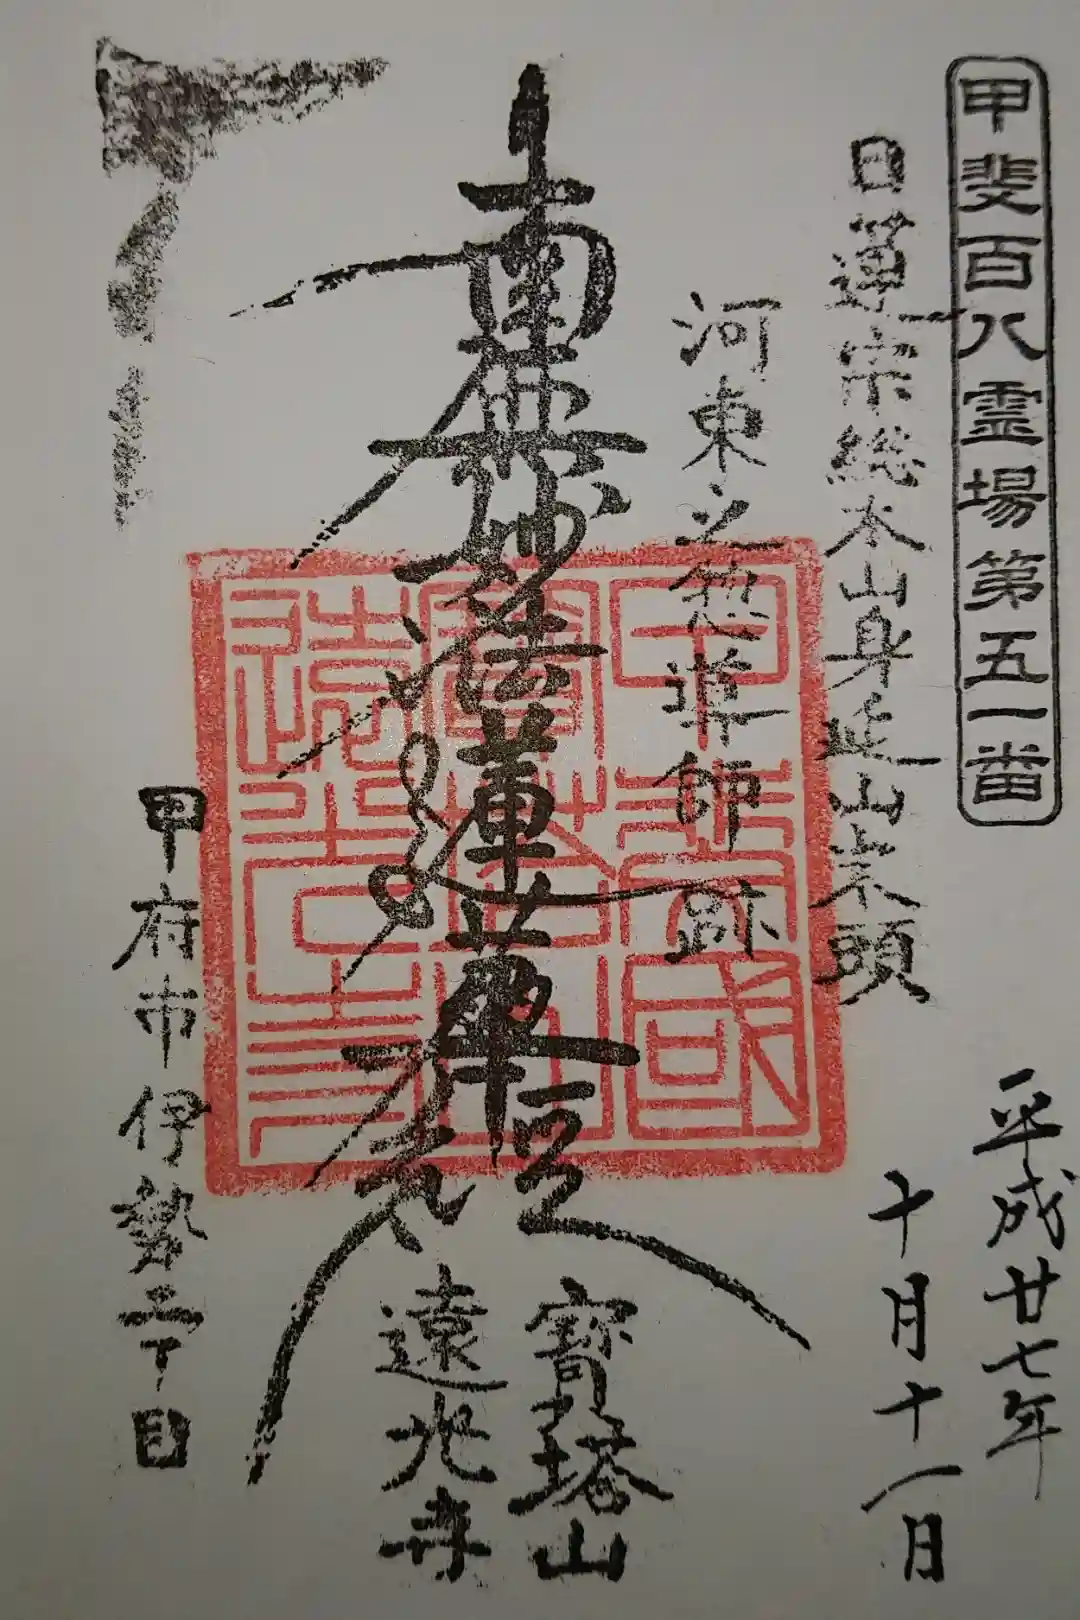 甲斐百八霊場第五一番
日蓮宗総本山身延山末頭
平成廿七年
十月十一日
河東之惣導師跡
南無妙法蓮華経
寶塔山
遠光寺
甲斐國
寶塔山
遠光寺
甲府市伊勢二丁目